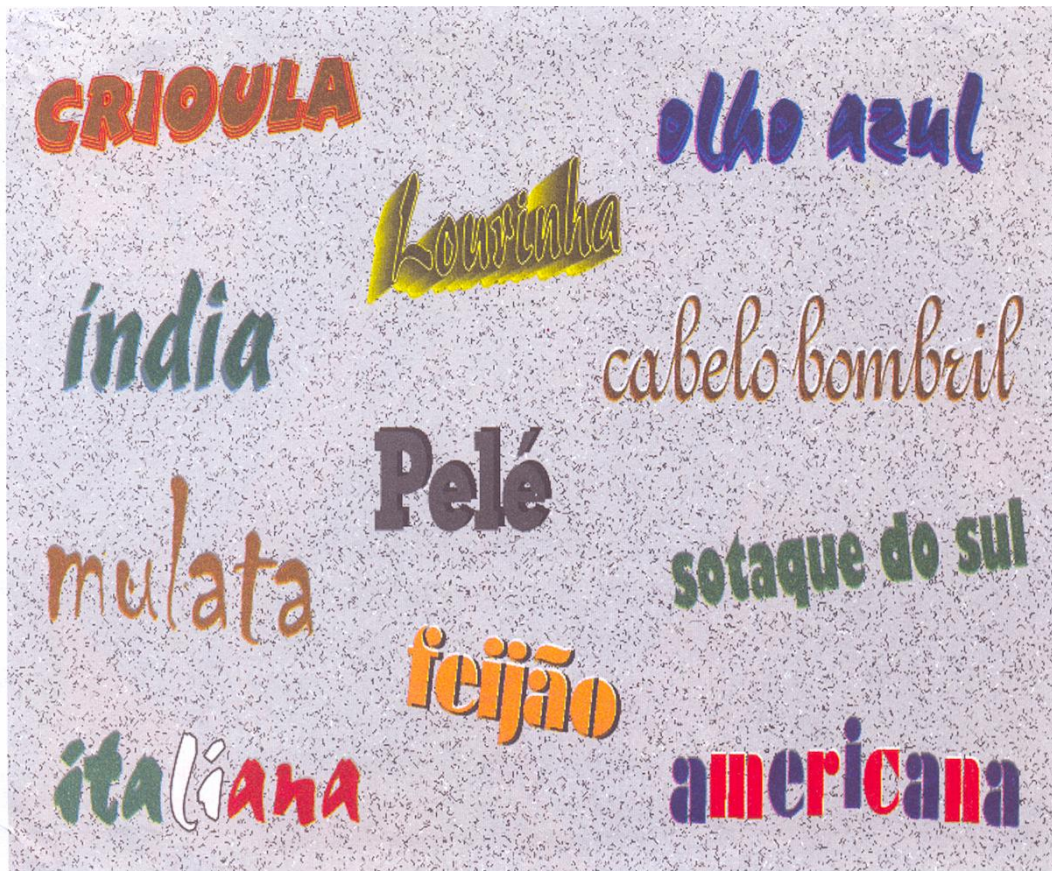 CRIOULA
olho azul
Lourinha
índia
cabelo bombril
Pelé
mulata
sotaque do sul
feijão
italiana
americana